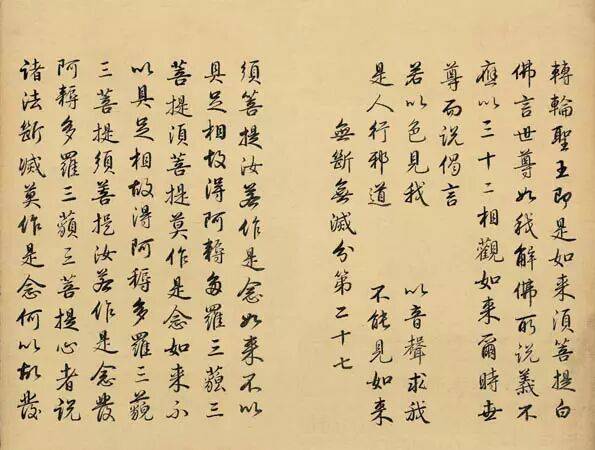 轉輪聖王即是如来須菩提白
佛言世尊如我解佛所說義不
應以三十二相觀如来爾時世
尊而說偈言
若以色見我 以音聲求我
是人行邪道 不能見如来
無斷無滅分第二十七
須菩提汝若作是念如来不以
具足相故得阿耨多羅三藐三
菩提須菩提莫作是念如来不
以具足相故得阿耨多羅三藐
三菩提須菩提汝若作是念發
阿耨多羅三藐三菩提心者說
諸法斷滅莫作是念何以故發